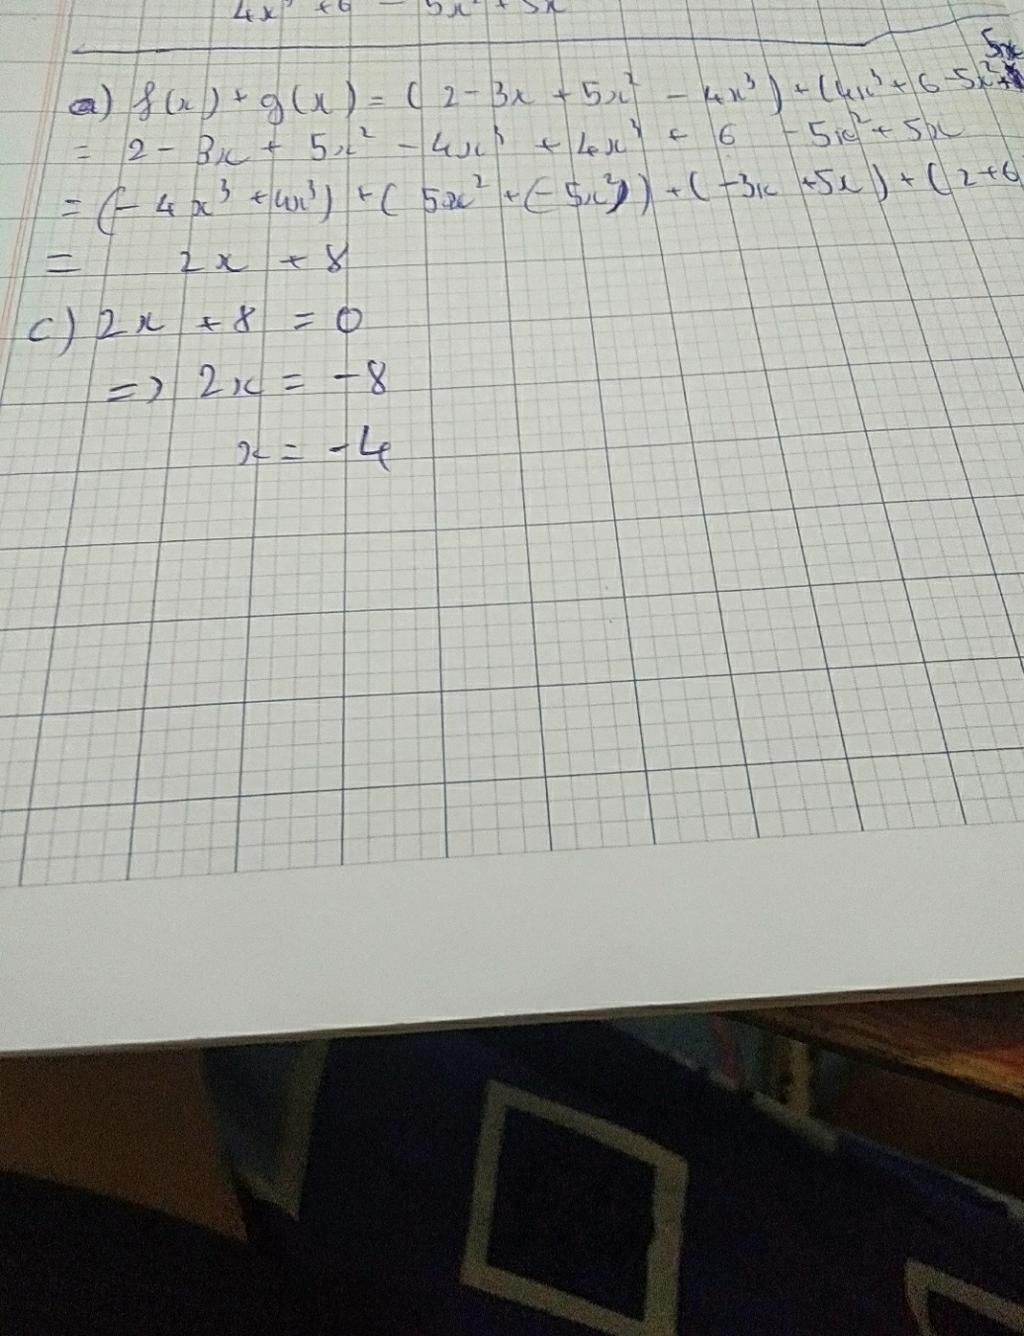 4x³ + 6 - 5x² + 5x
a) f(x) + g(x) = ( 2 - 3x + 5x² - 4x³ ) + (4x³ + 6 - 5x² + 5x
= 2 - 3x + 5x² - 4x³ + 4x³ + 6 - 5x² + 5x
= (- 4x³ + 4x³) + ( 5x² + (- 5x²) ) + ( -3x + 5x ) + ( 2 + 6
= 2x + 8
c) 2x + 8 = 0
=> 2x = -8
x = -4